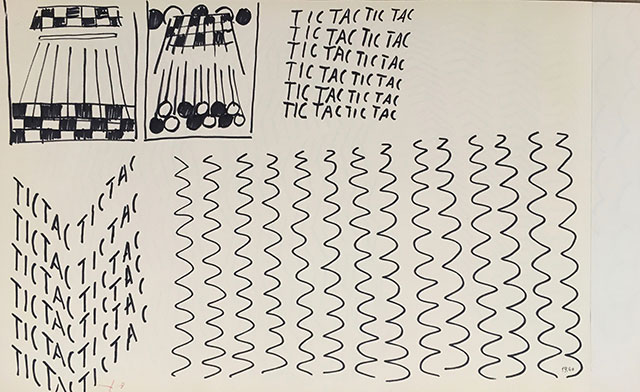 TIC TAC TIC TAC
TIC TAC TIC TAC
TIC TAC TIC TAC
TIC TAC TIC TAC
TIC TAC TIC TAC
TIC TAC TIC TAC
TIC TAC TIC TAC
TIC TAC TIC TAC
TIC TAC TIC TAC
TIC TAC TIC TAC
TIC TAC TIC TAC
TIC TAC TIC TAC